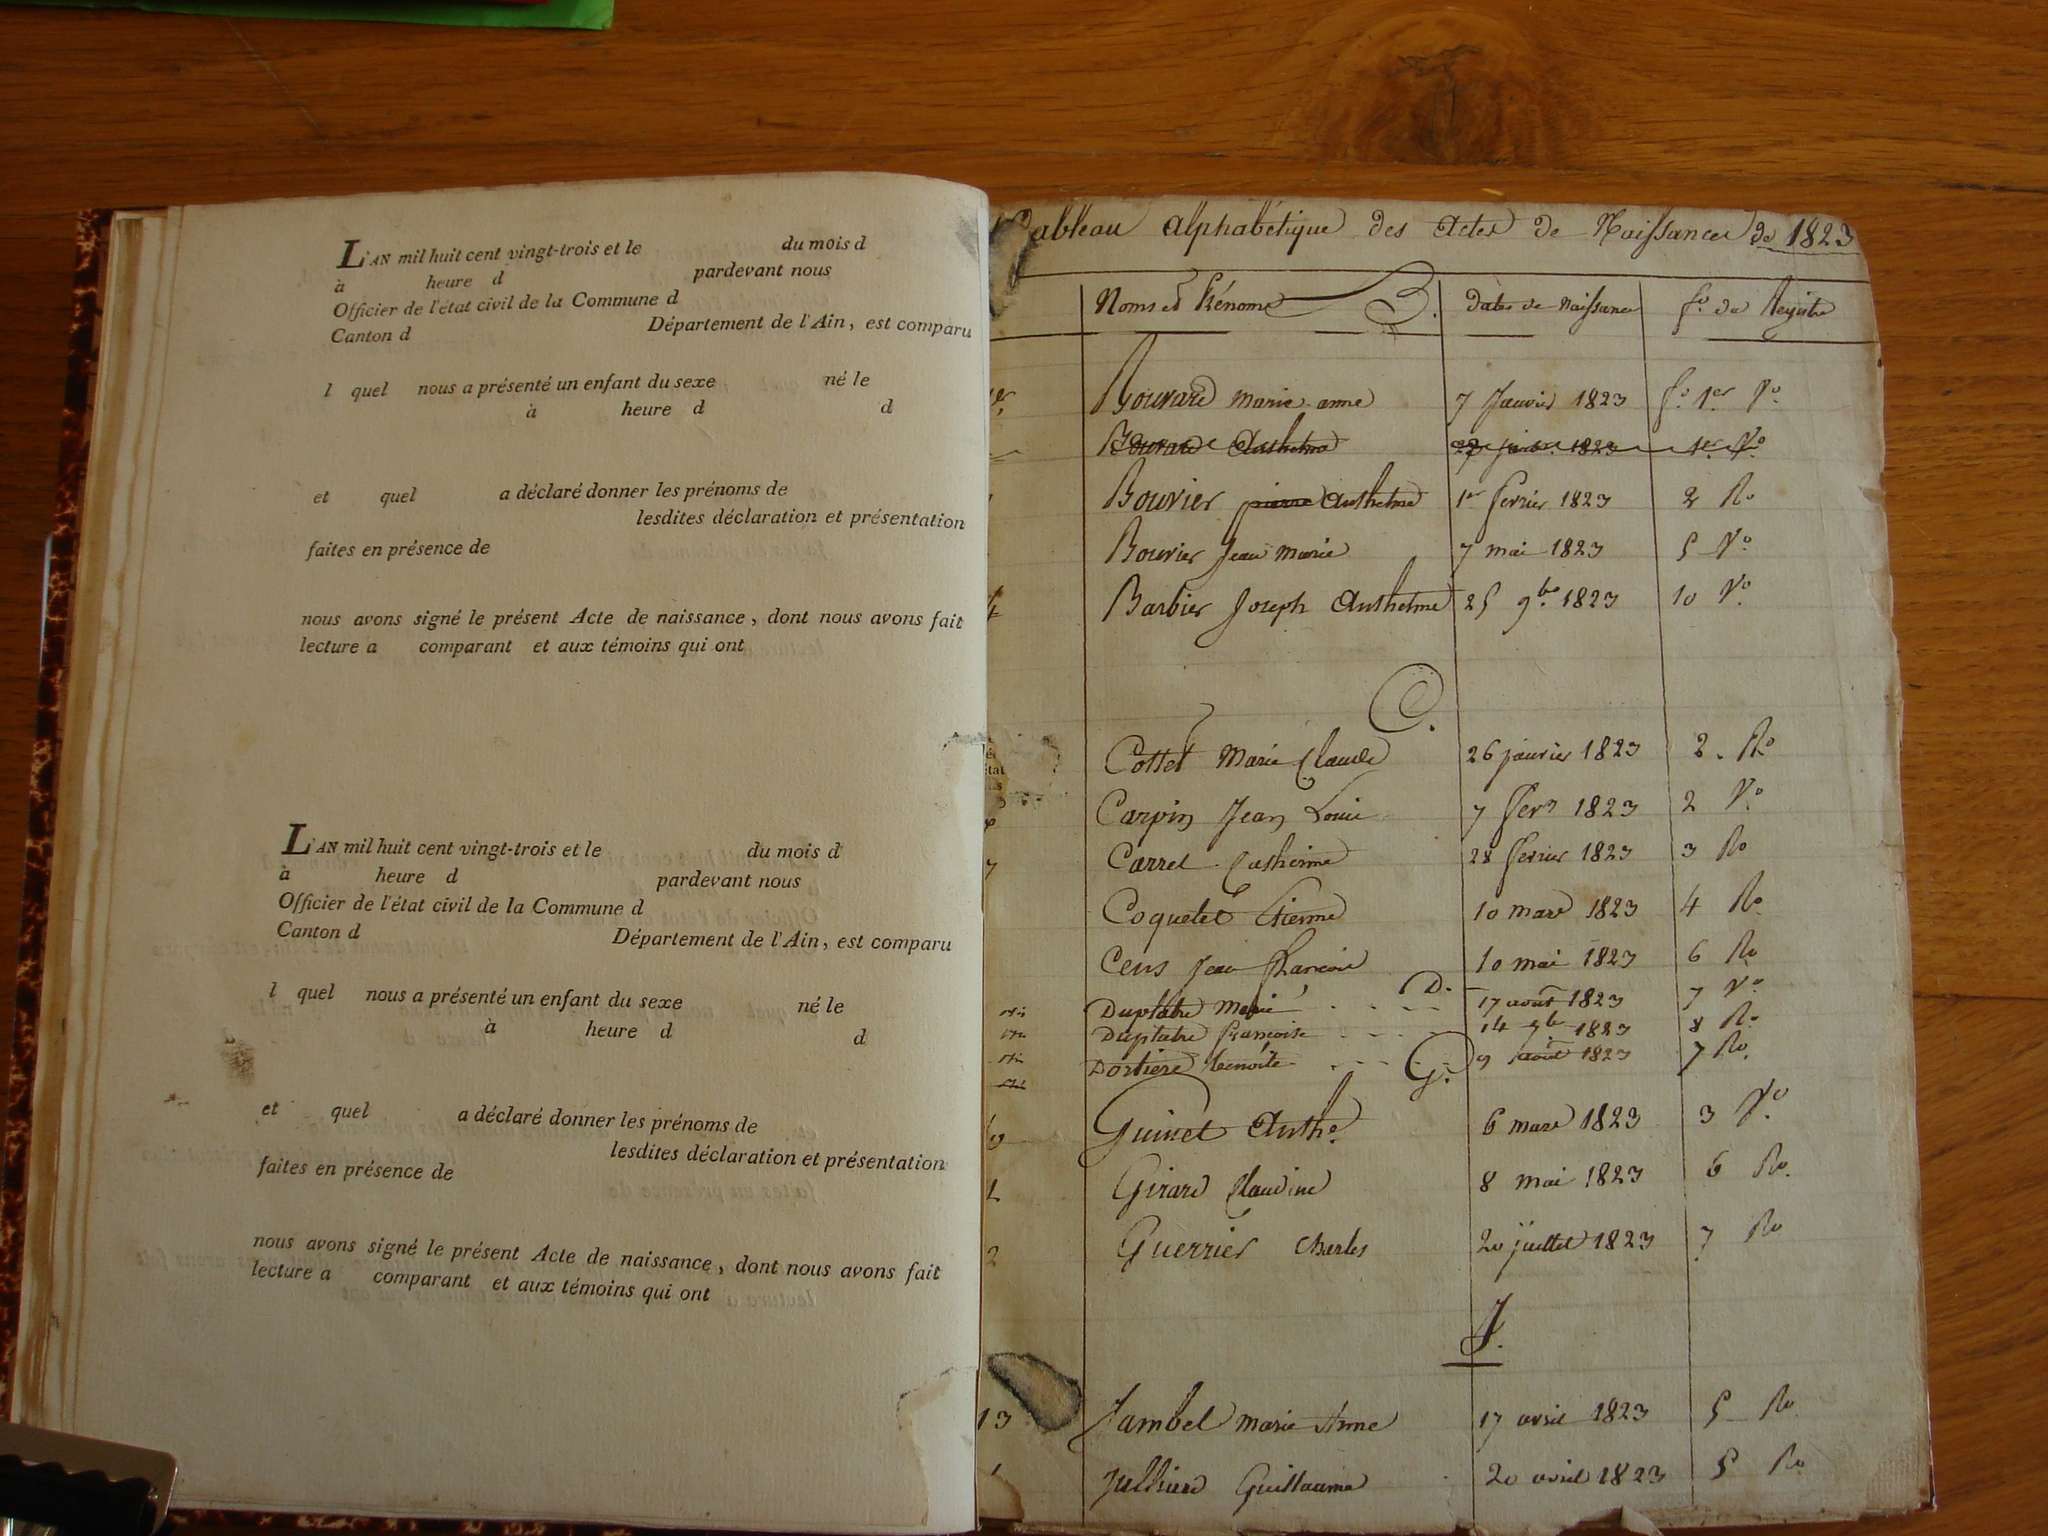 L'AN mil huit cent vingt-trois et le du mois d
à heure d pardevant nous
Officier de l'état civil de la Commune d
Canton d Département de l'Ain, est comparu
l quel nous a présenté un enfant du sexe né le
à heure d d
et quel a déclaré donner les prénoms de
lesdites déclaration et présentation
faites en présence de
nous avons signé le présent Acte de naissance, dont nous avons fait
lecture a comparant et aux témoins qui ont
L'AN mil huit cent vingt-trois et le du mois d
à heure d pardevant nous
Officier de l'état civil de la Commune d
Canton d Département de l'Ain, est comparu
l quel nous a présenté un enfant du sexe né le
à heure d d
et quel a déclaré donner les prénoms de
lesdites déclaration et présentation
faites en présence de
nous avons signé le présent Acte de naissance, dont nous avons fait
lecture a comparant et aux témoins qui ont
Tableau alphabétique des Actes de Naissances de 1823
Noms et Prénoms B. Dates de Naissance fo. du Registre
Bouvard marie anne 7 Janvier 1823 fo. 1er Vo.
Bouvard Anthelme 27 janvr. 1823 1er Vo.
Bouvier pierre Anthelme 1er fevrier 1823 2 Ro
Bouvier Jean Marie 7 mai 1823 5 Vo.
Barbier Joseph Anthelme 25 9bre 1823 10 Vo.
C.
Cottet Marie Claude 26 janvier 1823 2. Ro
Carpin Jean Louis 7 fevr 1823 2 Vo.
7 Carrel Catherine 28 fevrier 1823 3 Ro
Coquelet Etienne 10 mars 1823 4 Ro.
Cens Jean François 10 mai 1823 6 Ro
D.
Duplatre Marie 17 août 1823 7 Vo.
Duplatre françoise 14 7bre 1823 8 Ro.
Dortiere benoite 9 août 1823 7 Ro.
G.
Guinet Anthe. 6 mars 1823 3 Vo.
Girard Claudine 8 mai 1823 6 Ro.
2 Guerrier Charles 20 juillet 1823 7 Ro
J.
13 Jambel marie Anne 17 avril 1823 5 Ro.
Jullierd Guillaume 20 avril 1823 5 Ro